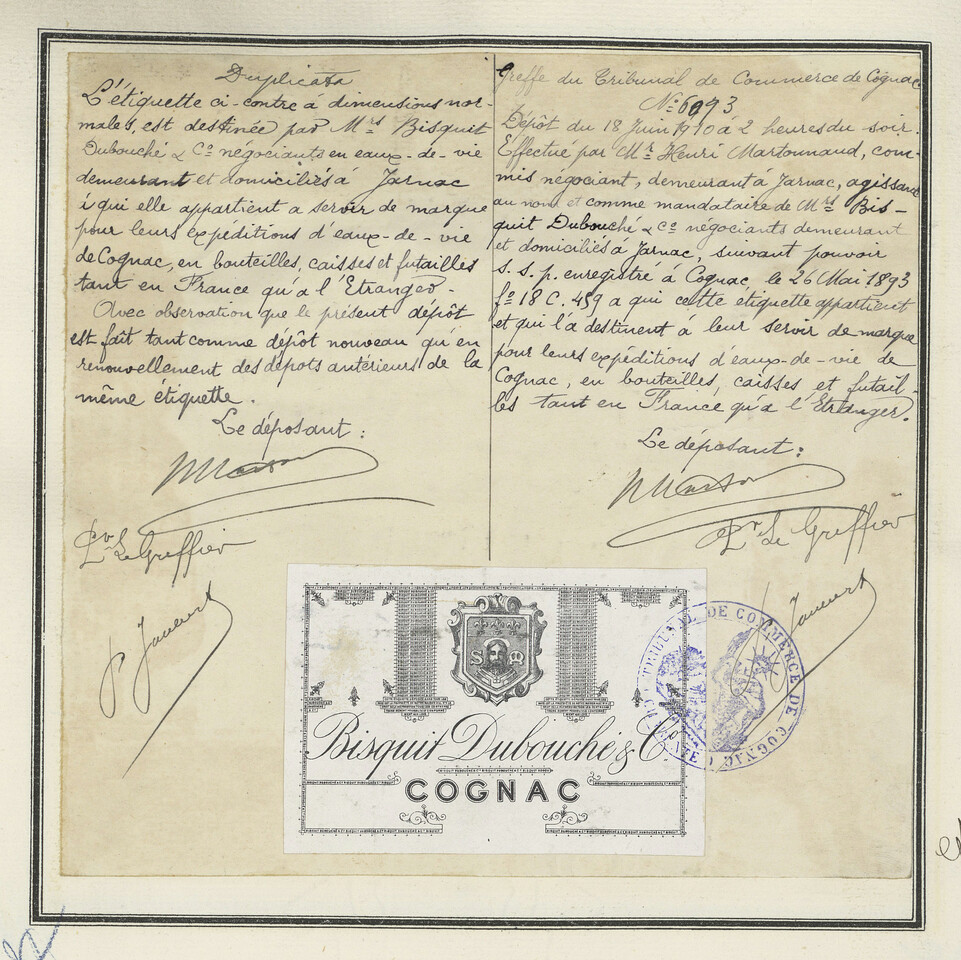 Duplicata
L'étiquette ci-contre à dimensions nor-
males, est destinée par Mrs Bisquit
Dubouché & Co négociants en eaux-de-vie
demeurant et domiciliés à Jarnac
à qui elle appartient a servir de marque
pour leurs expéditions d'eaux-de-vie
de Cognac, en bouteilles, caisses et futailles
tant en France qu'a l'Etranger.
Avec observation que le présent dépôt
est fait tant comme dépôt nouveau qu'en
renouvellement des dépots antérieurs de la
même étiquette.
Le déposant :
Pr Le Greffier
Greffe du Tribunal de Commerce de Cognac
No 6093
Dépôt du 18 Juin 1910 à 2 heures du soir.
Effectué par Mr Henri Martounaud, com-
mis négociant, demeurant à Jarnac, agissant
au nom et comme mandataire de Mrs Bis-
quit Dubouché & Co négociants demeurant
et domiciliés à Jarnac, suivant pouvoir
s.s.p. enregistré à Cognac, le 26 Mai 1893
fo 18 C. 459 a qui cette étiquette appartient
et qui l'a destinent à leur servir de marque
pour leurs expéditions d'eaux-de-vie de
Cognac, en bouteilles, caisses et futail-
les tant en France qu'a l'Etranger.
Le déposant :
Pr Le Greffier
Bisquit Dubouché & Co
COGNAC
TRIBUNAL DE COMMERCE DE COGNAC